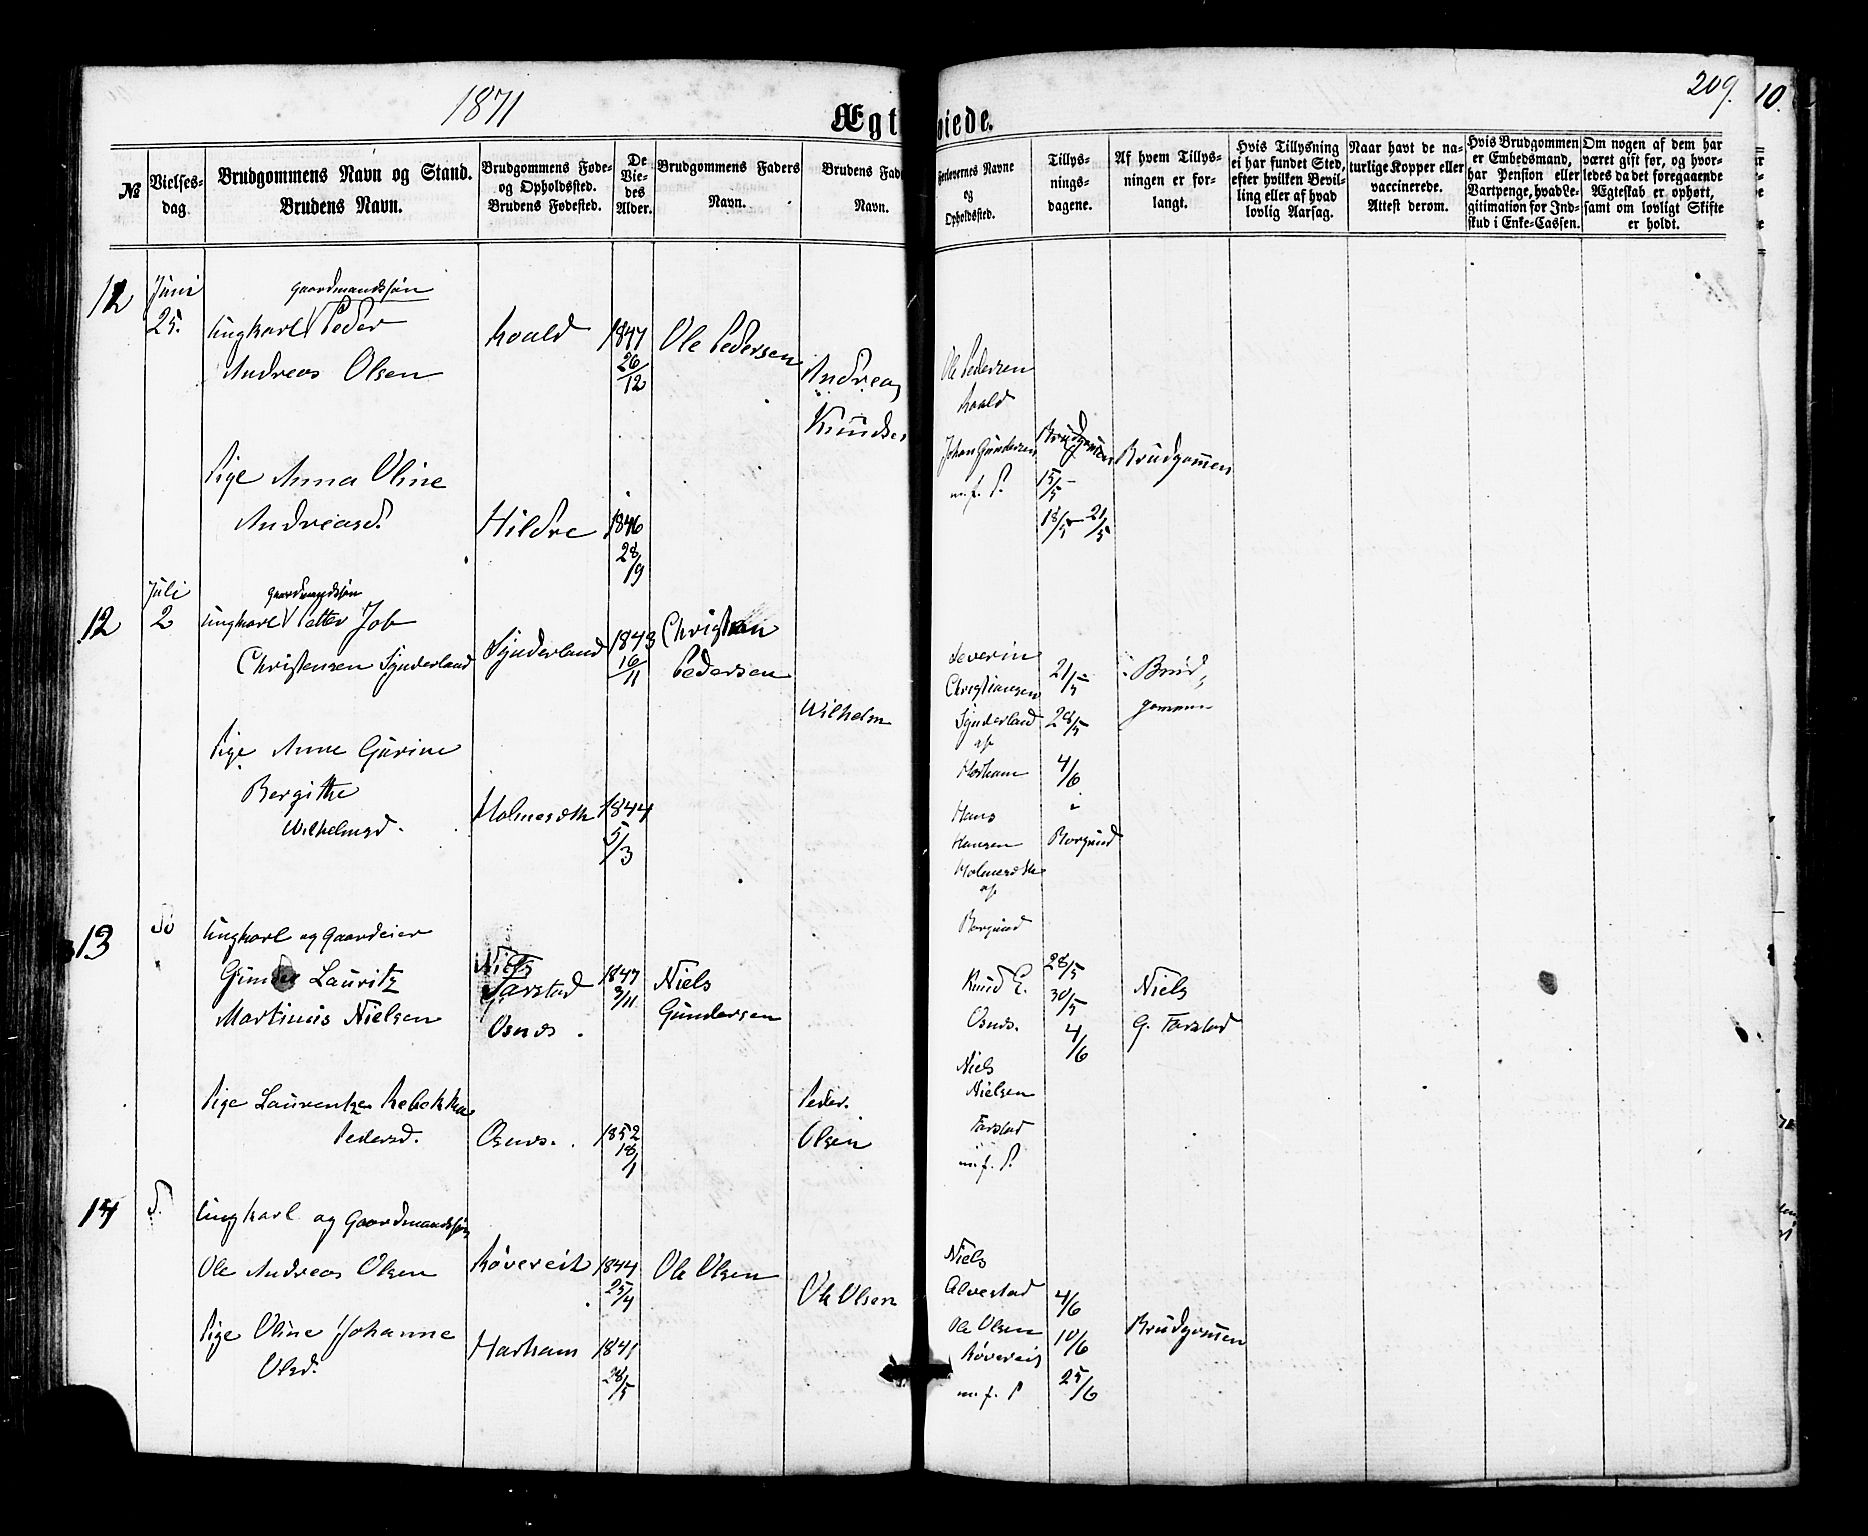 1871
Ægt viede.
209.
10.
№
Vielses-
dag.
Brudgommens Navn og Stand.
Brudens Navn.
Brudgommens Føde-
og Opholdssted.
Brudens Fødested.
De
Vie-
des
Alder.
Brudgommens Faders
Navn.
Brudens Fad
Navn.
Forlovernes Navne
og
Opholdssted.
Tillys-
nings-
dagene.
Af hvem Tillys-
ningen er for-
langt.
Hvis Tillysning
ei har fundet Sted,
efter hvilken Bevil-
ling eller af hvad
lovlig Aarsag.
Naar havt de na-
turlige Kopper eller
vaccinerede.
Attest derom.
Hvis Brudgommen
er Embedsmand,
har Pension eller
Vartpenge, hvad Le-
gitimation for Ind-
skud i Enke-Cassen.
Om nogen af dem har
været gift før, og hvor-
ledes da det foregaaende
Ægteskab er ophørt,
samt om lovligt Skifte
er holdt.
12
Juni
25.
Gaardmandssøn
Ungkarl Peder
Andreas Olsen
Roald
1847
26/12
Ole Pedersen
Andreas
Knudse
Pige Anna Oline
Andreasd.
Hildre
1846
28/9
Ole Pedersen
Roald
Johan Gundersen
m. f. S.
Brudgomen
15/5
18/5 – 21/5
Brudgomen
12
Juli
2
Gaardmandssøn
Ungkarl Petter Job
Christensen Synderland
Synderland
1843
16/11
Christian
Pedersen
Wilhelm
Pige Anne Gurine
Bergitte
Wilhelmsd.
1844
5/3
Severin
Christiansen
Synderland
af
Harham
Hans
Hansen
af
Borgund
21/5
28/5
4/6
Borgund
Brud
gommen
13
Do
Ungkarl og Gaardeier
Gunder Lauritz
Martinus Nielsen
Niels
Farstad
Osnes.
1847
3/11
Niels
Gundersen
Pige Laurentze Rebekka
Pedersd.
Osnes.
1852
18/1
Peder.
Olsen
Knud E.
Osnes.
Niels
Nielsen
Farstad
m. f. S.
28/5
30/5
4/6
Niels
G. Farstad
14
D.
Ungkarl og Gaardmandssøn
Ole Andreas Olsen
Røvereit
1844
25/4
Ole Olsen
Ole Olsen
Pige Oline Johanne
Olsd.
Harham
1841
28/5
Niels
Alvestad
Ole Olsen
Røvereit
m. f. S
4/6
10/6
25/6
Brudgommen